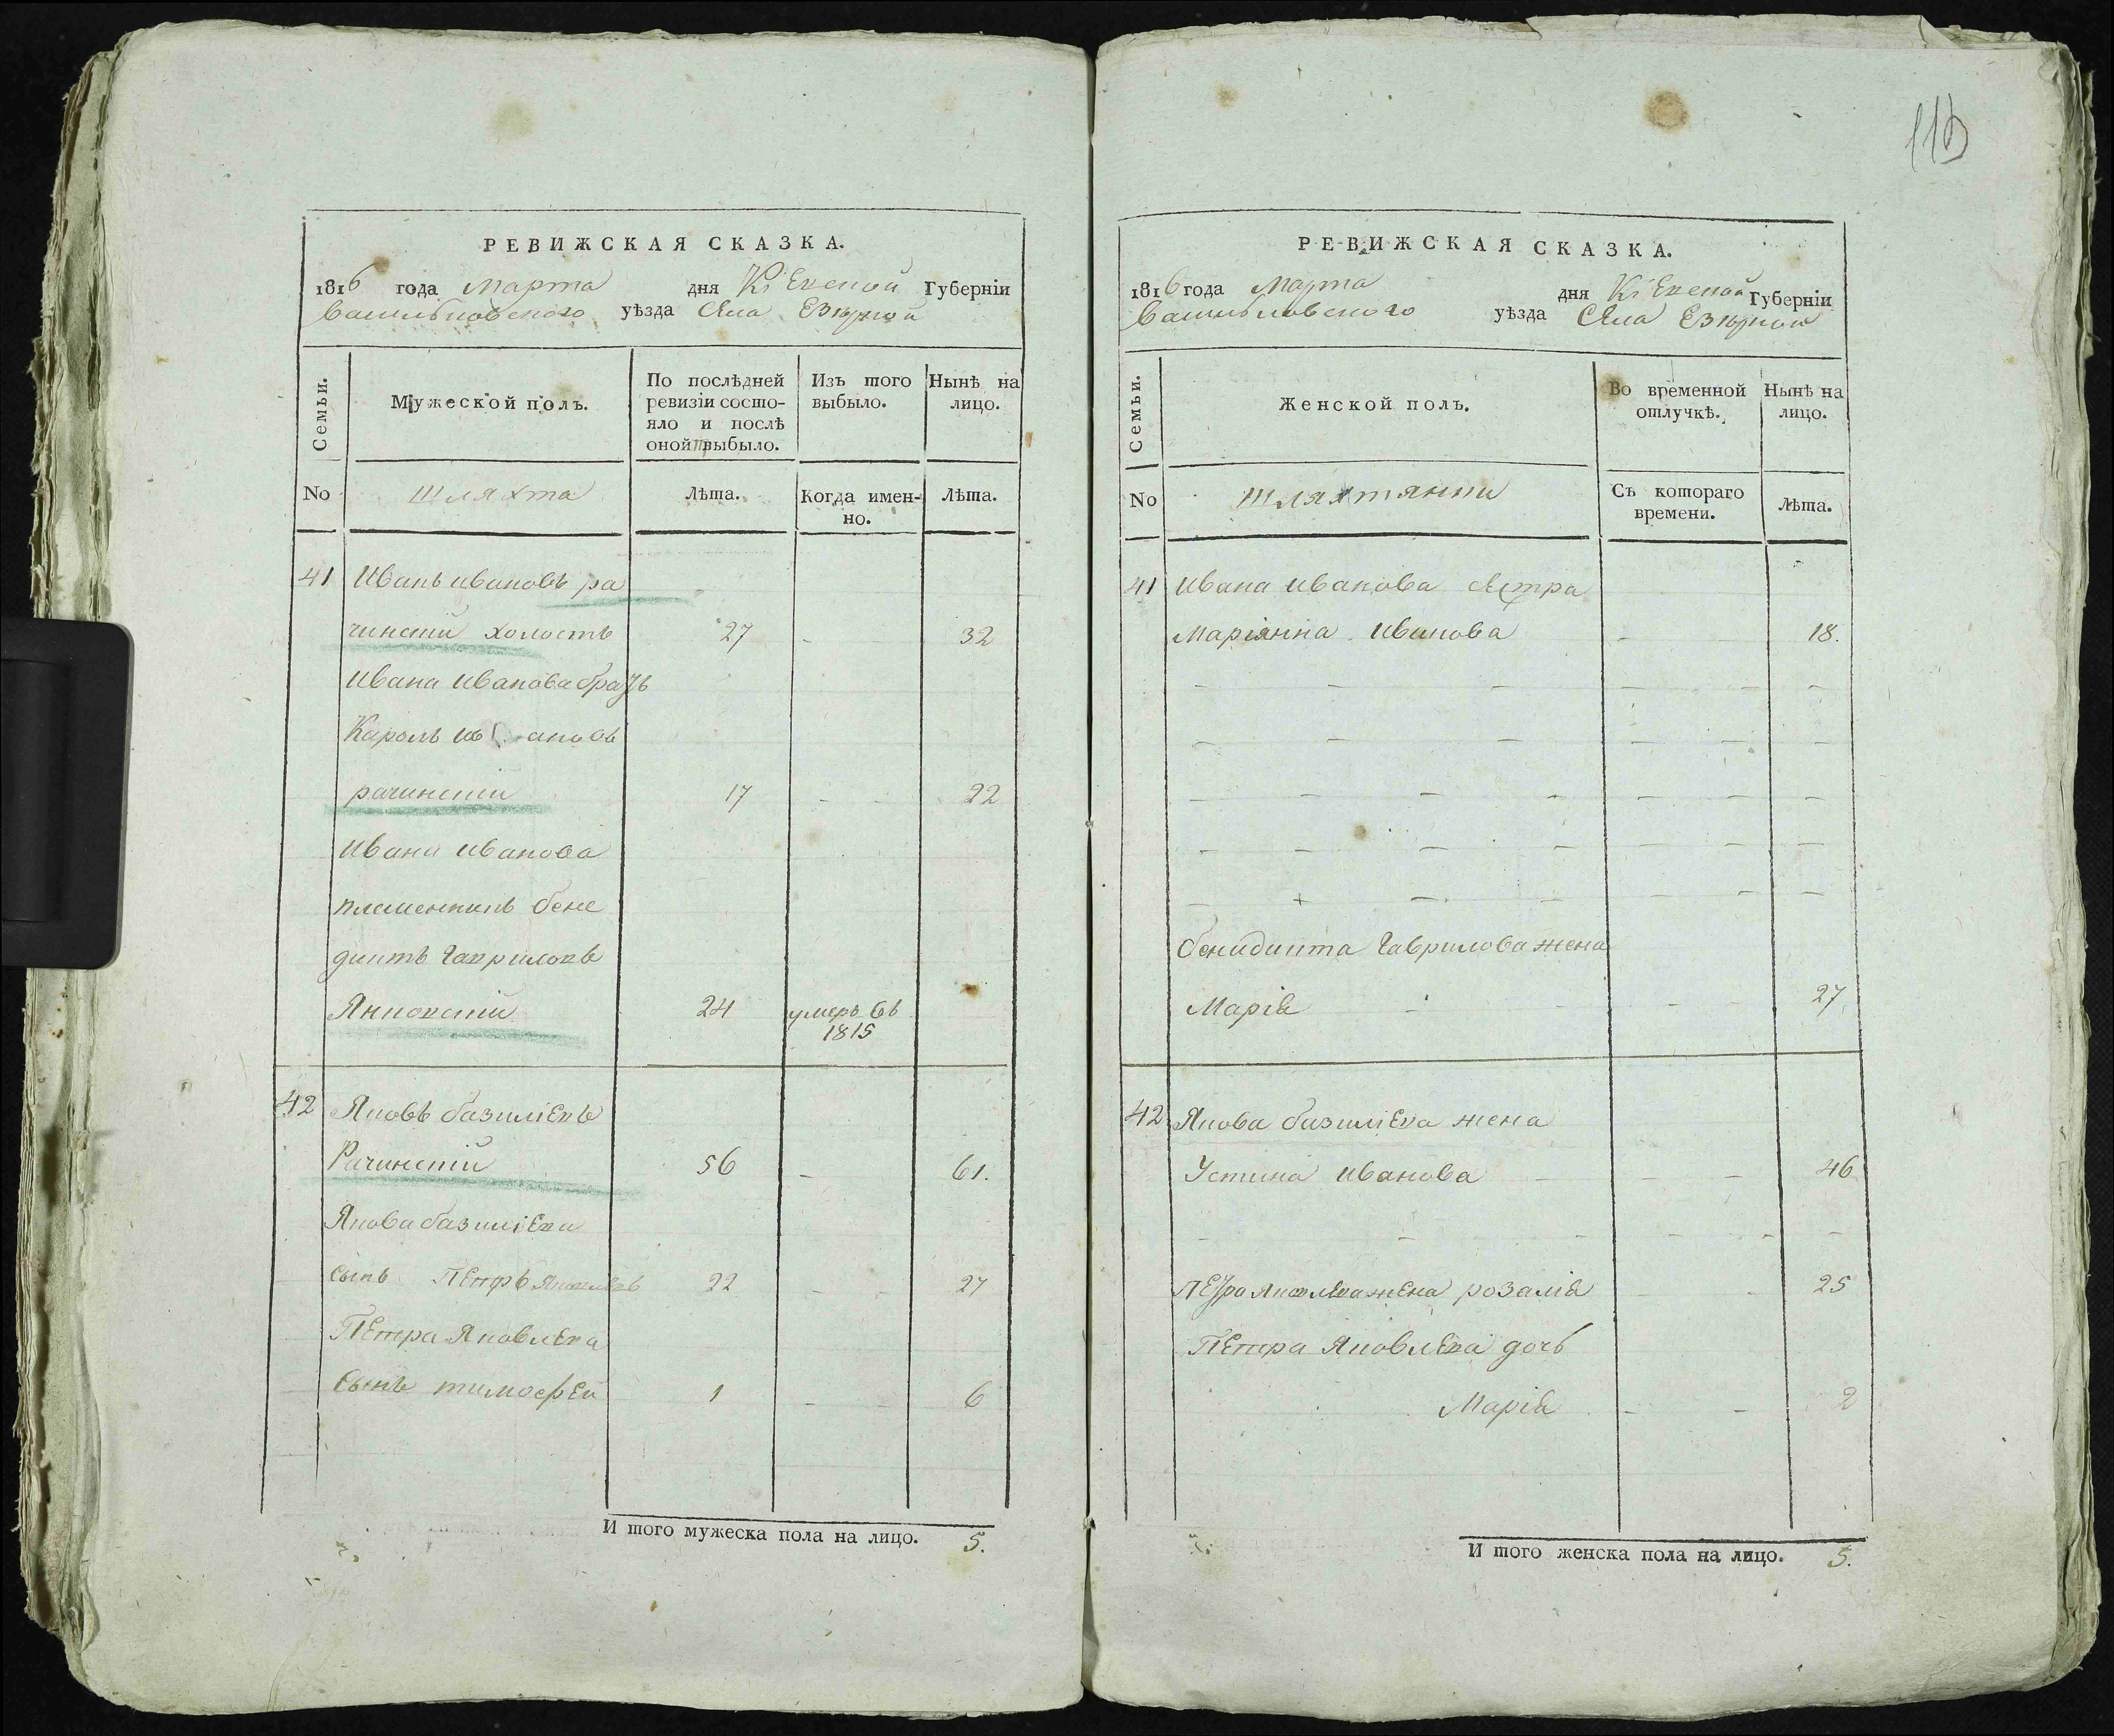 РЕВИЖСКАЯ СКАЗКА.
1816 года Марта дня Кіевской Губерніи
Васильковского уѣзда Села Езерной
Семьи.
Мужеской полъ.
По послѣдней ревизіи состо-
яло и послѣ
оной выбыло.
Изъ того
выбыло.
Нынѣ на
лицо.
No
шляхта
Лѣта.
Когда имен-
но.
Лѣта.
41 Иванъ ивановъ ра
чинскій холостъ 27 - 32
Ивана Иванова братъ
Кароль ивановъ
рачинскій 17 - - 22
Ивана иванова
племенникъ бене
диктъ гавриловъ
Янковскій 24 умеръ въ
1815
42 Яковъ базиліевъ
Рачинскій 56 - 61.
Якова базиліева
сынъ Петръ Яковлевъ 22 - - 27
Петра Яковлева
сынъ тимофей 1 - - 6
И того мужеска пола на лицо. 5.
113
РЕВИЖСКАЯ СКАЗКА.
1816 года Марта дня Кіевской Губерніи
Васильковского уѣзда Села Езерной
Семьи.
Женской полъ.
Во временной
отлучкѣ.
Нынѣ на
лицо.
No
шляхтянки
Съ котораго
времени.
Лѣта.
41 Ивана Иванова сестра
Маріянна Иванова - 18.
бенидикта Гаврилова жена
Марія - - 27
42 Якова базиліева жена
Устина иванова - - - 46
Петра яковлева жена розалія - - 25
Петра Яковлева дочь
Марія - - 2
И того женска пола на лицо. 5.